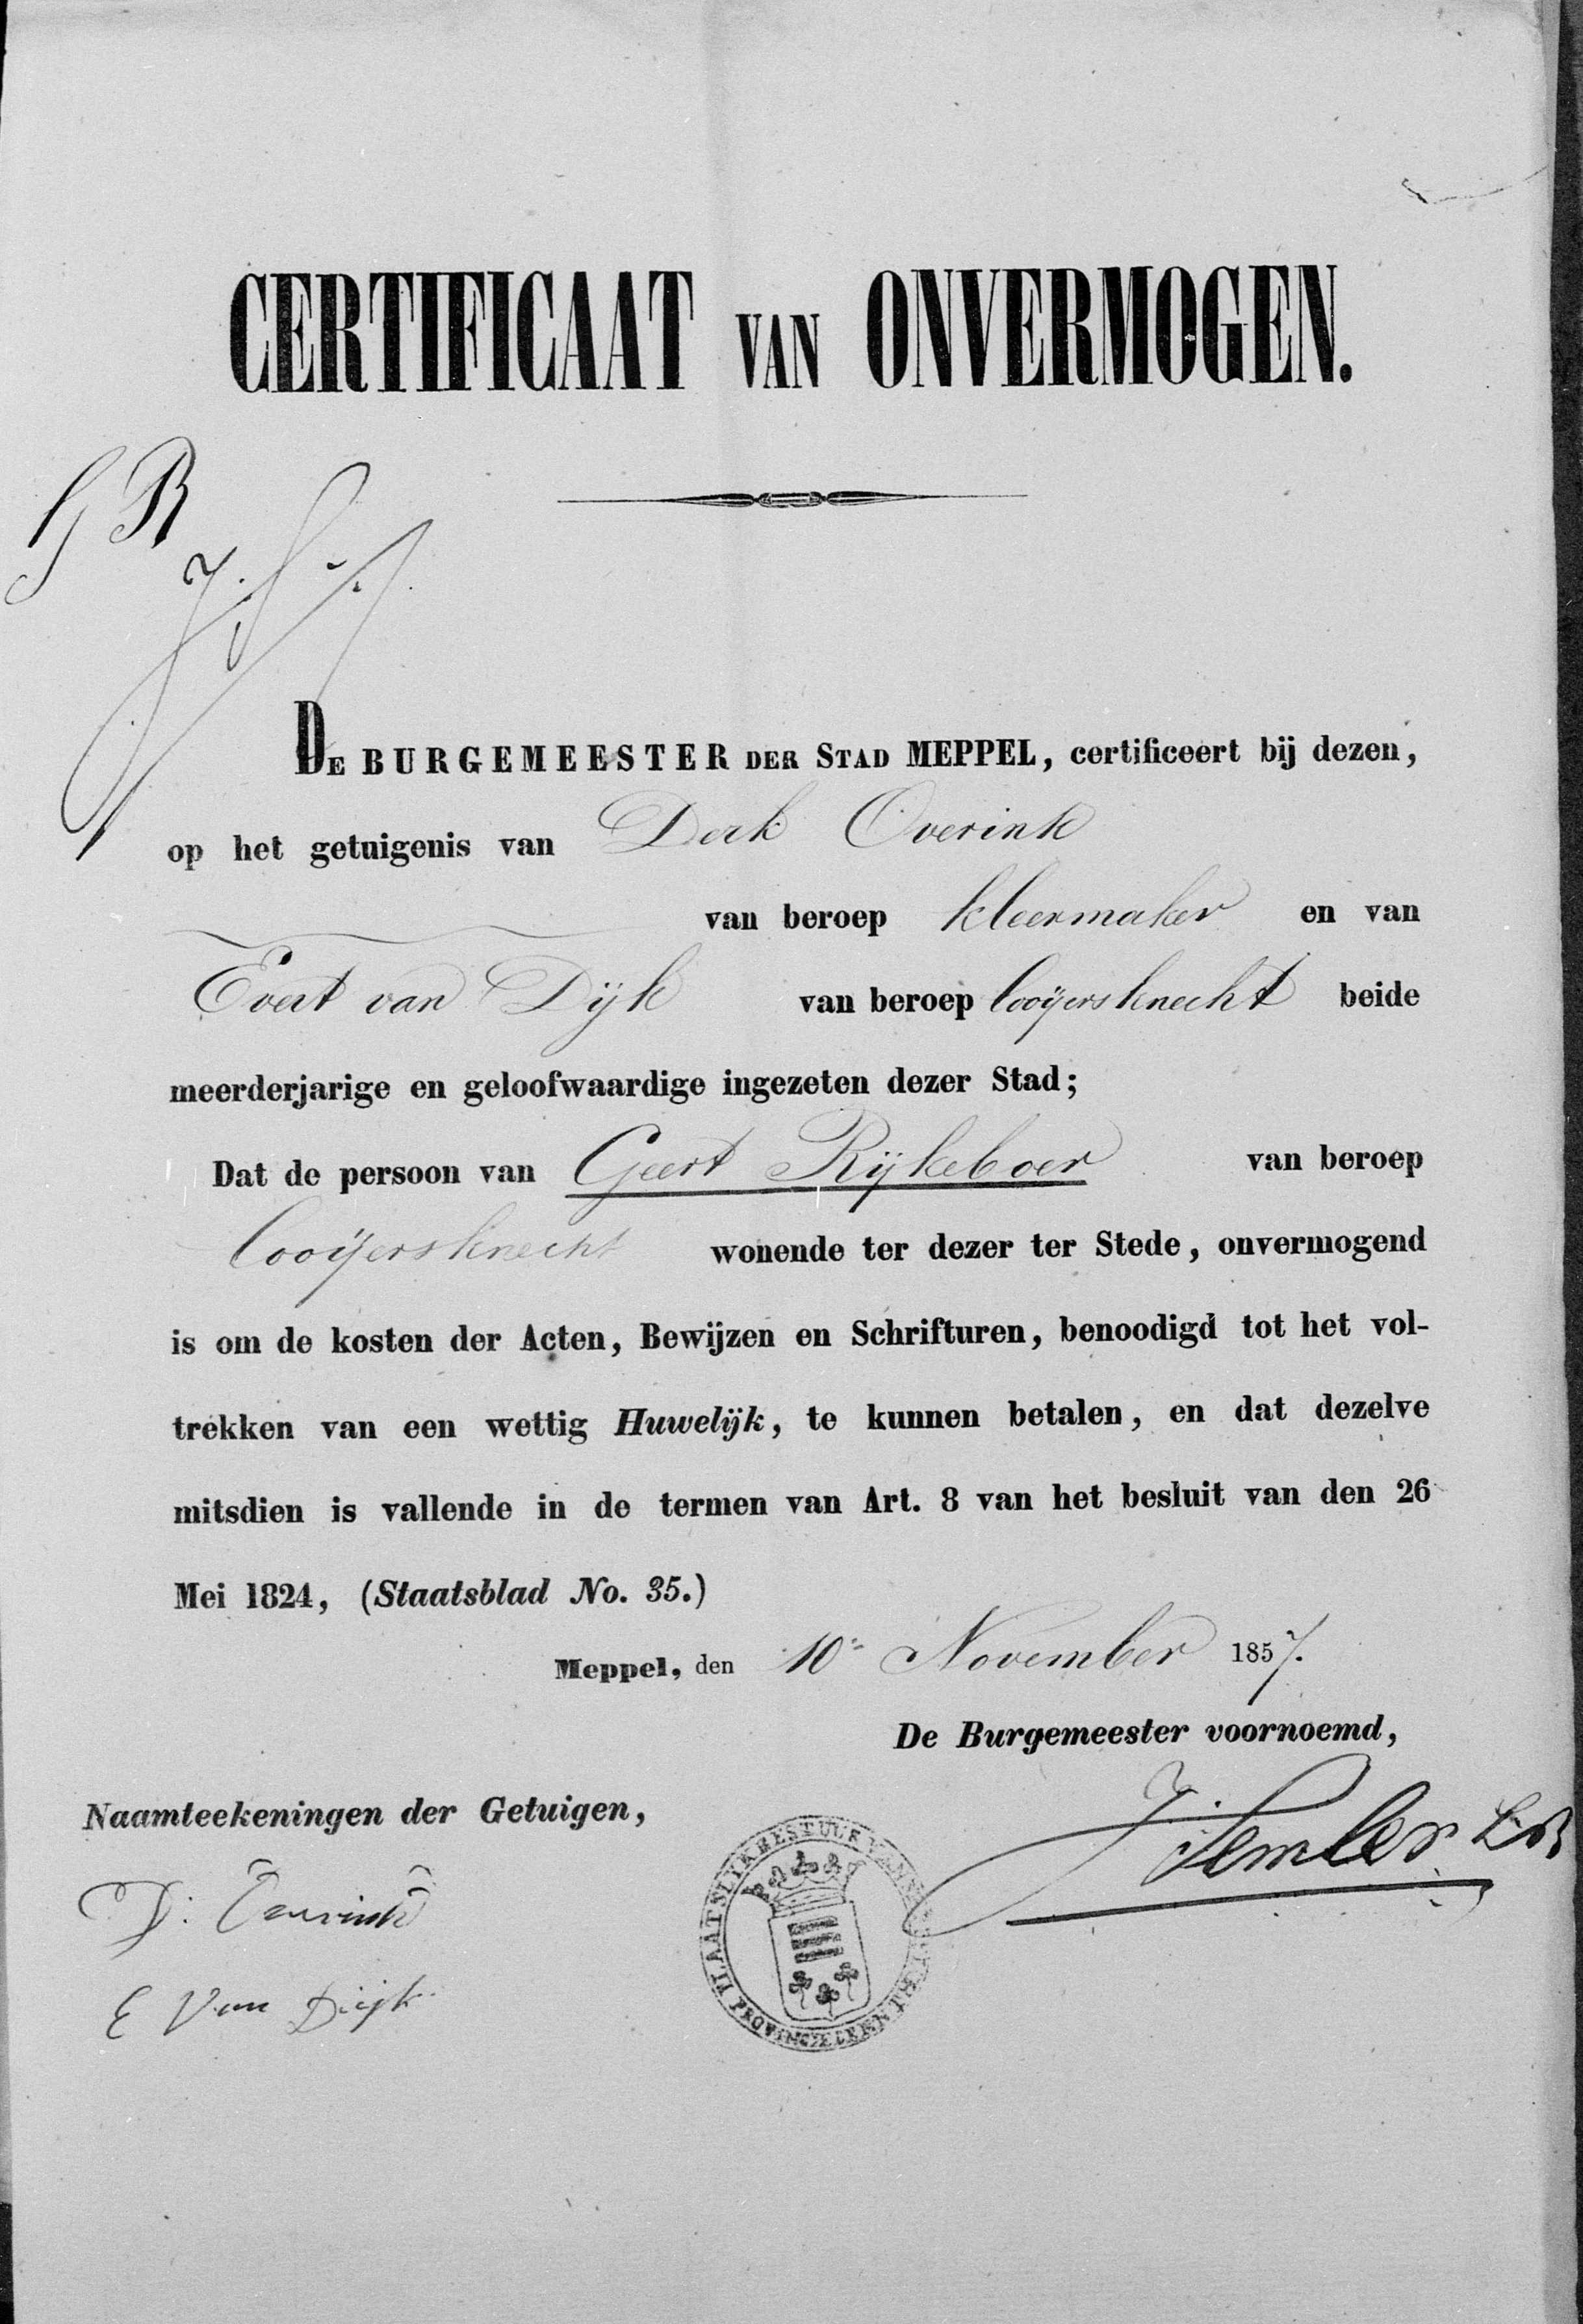 CERTIFICAAT VAN ONVERMOGEN.
G R
DE BURGEMEESTER DER STAD MEPPEL, certificeert bij dezen,
op het getuigenis van Derk Overink
van beroep kleermaker en van
Evert van Dijk van beroep looijersknecht beide
meerderjarige en geloofwaardige ingezeten dezer Stad;
Dat de persoon van Geert Rijkeboer van beroep
looijersknecht wonende ter dezer ter Stede, onvermogend
is om de kosten der Acten, Bewijzen en Schrifturen, benoodigd tot het vol-
trekken van een wettig Huwelijk, te kunnen betalen, en dat dezelve
mitsdien is vallende in de termen van Art. 8 van het besluit van den 26
Mei 1824, (Staatsblad No. 35.)
Meppel, den 10e November 1857.
De Burgemeester voornoemd,
Naamteekeningen der Getuigen,
PLAATSLYK BESTUUR VAN
PROVINCIE DRENTHE
D:
E Van Dijk